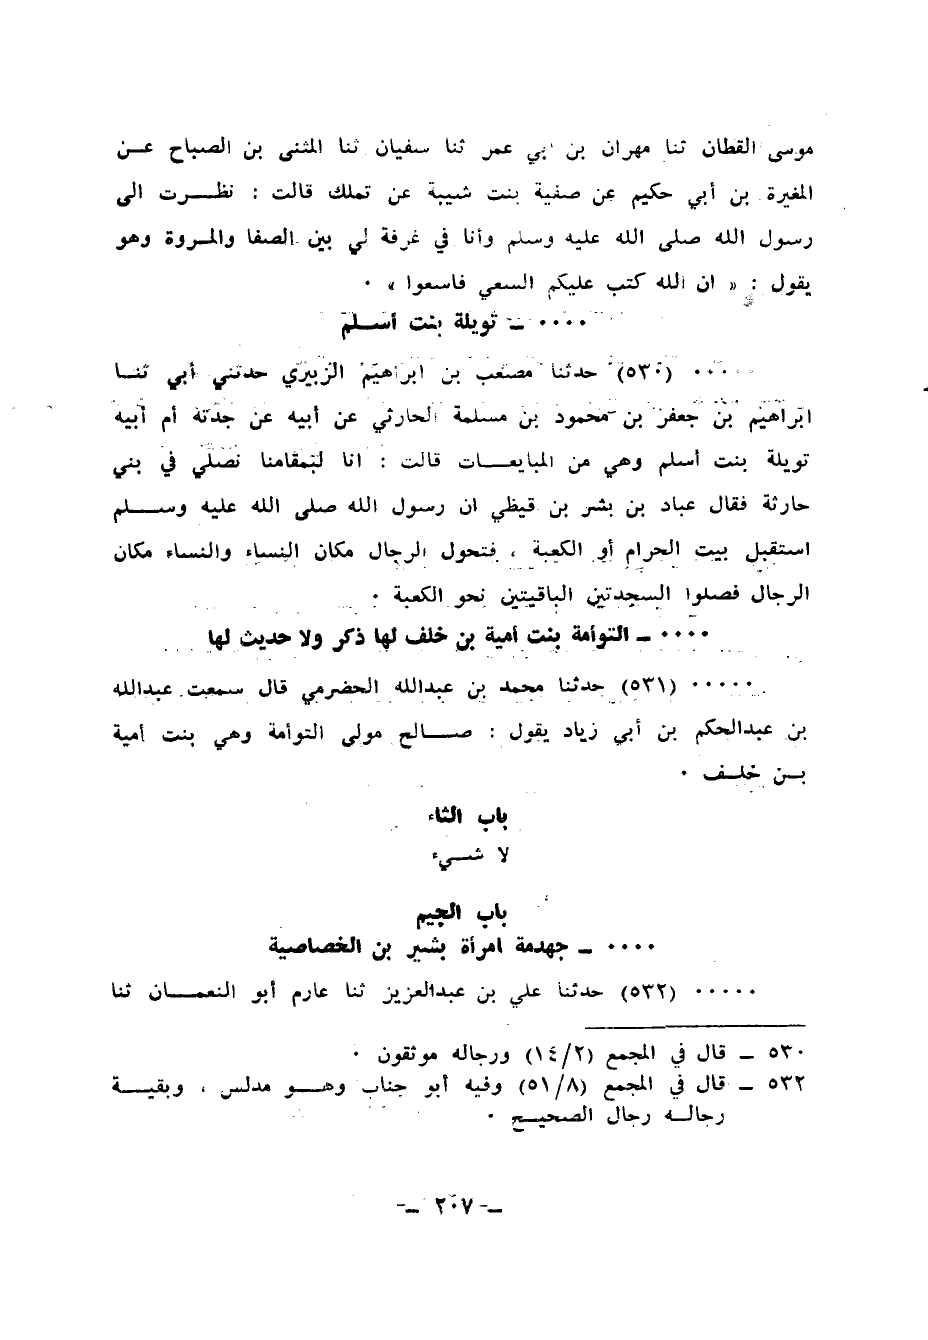 موسى القطان ثنا مهران بن أبي عمر ثنا سفيان ثنا المثنى بن الصباح عن
المغيرة بن أبي حكيم عن صفية بنت شيبة عن تملك قالت : نظرت الى
رسول الله صلى الله عليه وسلم وأنا في غرفة لي بين الصفا والمروة وهو
يقول : « ان الله كتب عليكم السعي فاسعوا » ٠
٠٠٠٠ ــ تويلة بنت أسلم
٠٠٠٠٠ (٥٣٠) حدثنا مصعب بن ابراهيم الزبيري حدثني أبي ثنا
ابراهيم بن جعفر بن محمود بن مسلمة الحارثي عن أبيه عن جدته أم أبيه
تويلة بنت أسلم وهي من المبايعات قالت : انا لبمقامنا نصلي في بني
حارثة فقال عباد بن بشر بن قيظي ان رسول الله صلى الله عليه وسلم
استقبل بيت الحرام أو الكعبة ، فتحول الرجال مكان النساء والنساء مكان
الرجال فصلوا السجدتين الباقيتين نحو الكعبة ٠
٠٠٠٠ ــ التوأمة بنت أمية بن خلف لها ذكر ولا حديث لها
٠٠٠٠٠ (٥٣١) حدثنا محمد بن عبدالله الحضرمي قال سمعت عبدالله
بن عبدالحكم بن أبي زياد يقول : صالح مولى التوأمة وهي بنت أمية
بن خلف ٠
باب الثاء
لا شيء
باب الجيم
٠٠٠٠ ــ جهدمة امرأة بشير بن الخصاصية
٠٠٠٠٠ (٥٣٢) حدثنا علي بن عبدالعزيز ثنا عارم أبو النعمان ثنا
٥٣٠ ــ قال في المجمع (١٤/٢) ورجاله موثقون ٠
٥٣٢ ــ قال في المجمع (٥١/٨) وفيه أبو جناب وهو مدلس ، وبقية
رجاله رجال الصحيح ٠
ــ ٢٠٧ ــ